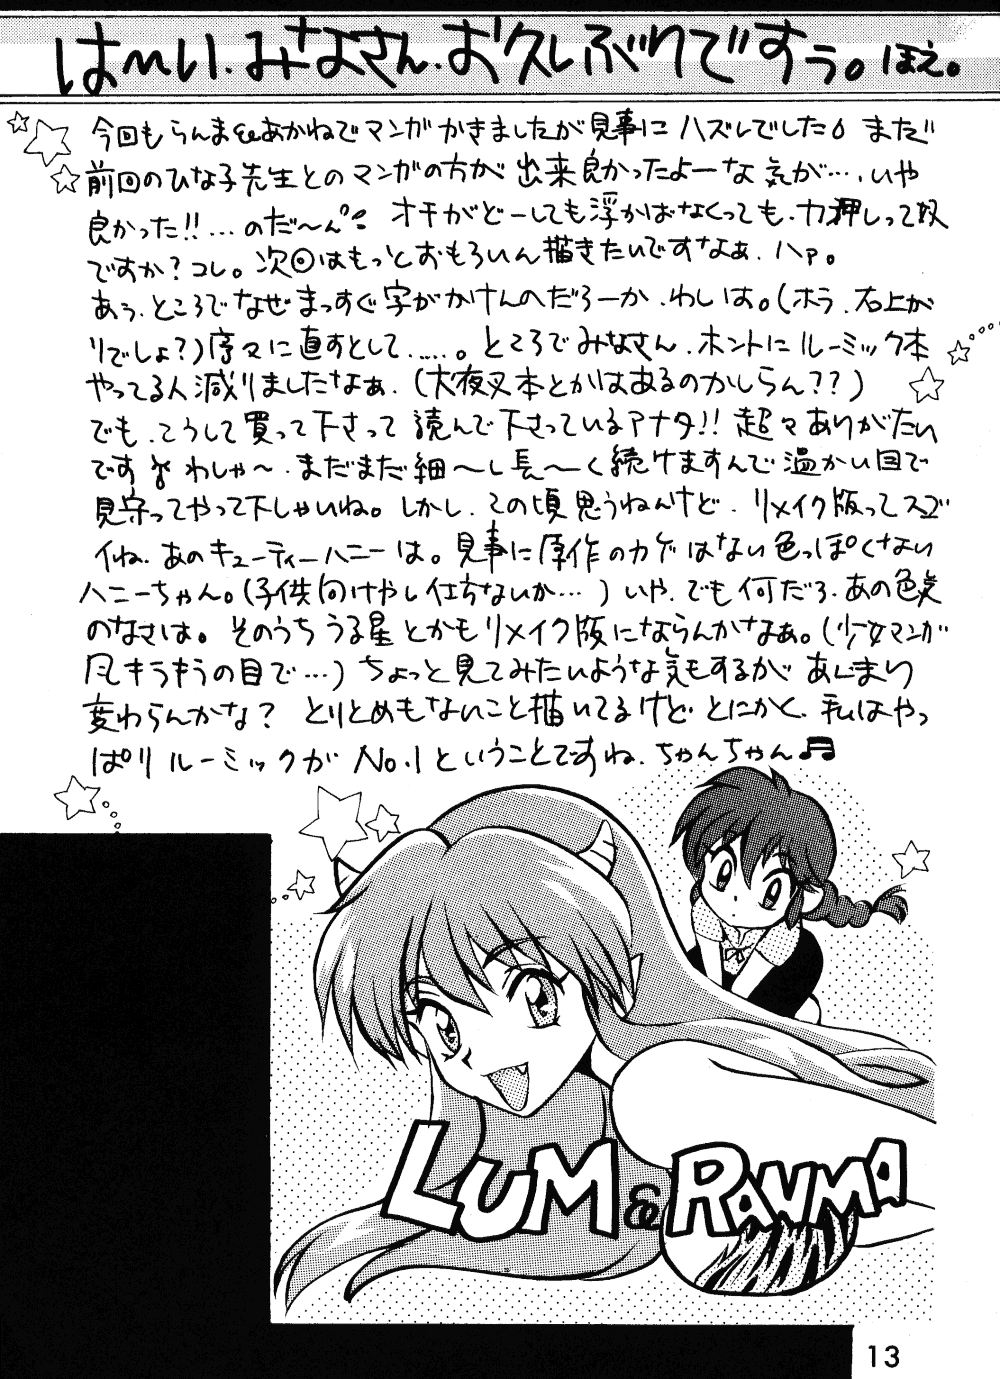 は〜い、みなさん、お久しぶりですぅ。ほえ。
今回もらんま&あかねでマンガかきましたが見事にハズレでした。まだ
前回のひな子先生とのマンガの方が出来良かったよーな気が…、いや
良かった!!…のだ〜ん オチがどーしても浮かばなくっても、力押しって奴
ですか?コレ。次回はもっとおもろいん描きたいですなぁ、ハァ。
あぅ、ところでなぜまっすぐ字がかけんのだろーか、わしは。(ホラ、右上が
りでしょ?)序々に直すとして……。ところでみなさん、ホントにルーミック本
やってる人減りましたなぁ、(犬夜叉本とかはあるのかしらん??)
でも、こうして買って下さって読んで下さっているアナタ!!超々ありがたい
です わしゃ〜、まだまだ細〜し長〜く続けますんで温かい目で
見守ってやって下しゃいね。しかし、この頃思うねんけど、リメイク版ってスゴ
イね、あのキューティーハニーは。見事に原作のカゲはない色っぽくない
ハニーちゃん。(子供向けやし仕方ないか…)いや、でも何だろ、あの色気
のなさは。そのうちうる星とかもリメイク版にならんかなぁ。(少女マンガ
風キラキラの目で…)ちょっと見てみたいような気もするが あんまり
変わらんかな? とりとめもないこと描いてるけど、とにかく、私はやっ
ぱりルーミックがNo.1ということですね、ちゃんちゃん♬
LUM & RANMA
13